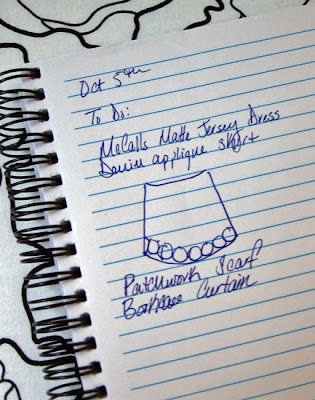 Oct 5th
To Do:
McCalls Matte Jersey Dress
Denim applique skirt
Patchwork Scarf
Bookcase Curtain